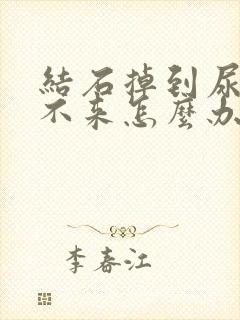 結石掉到尿
不来怎麼办
李春江